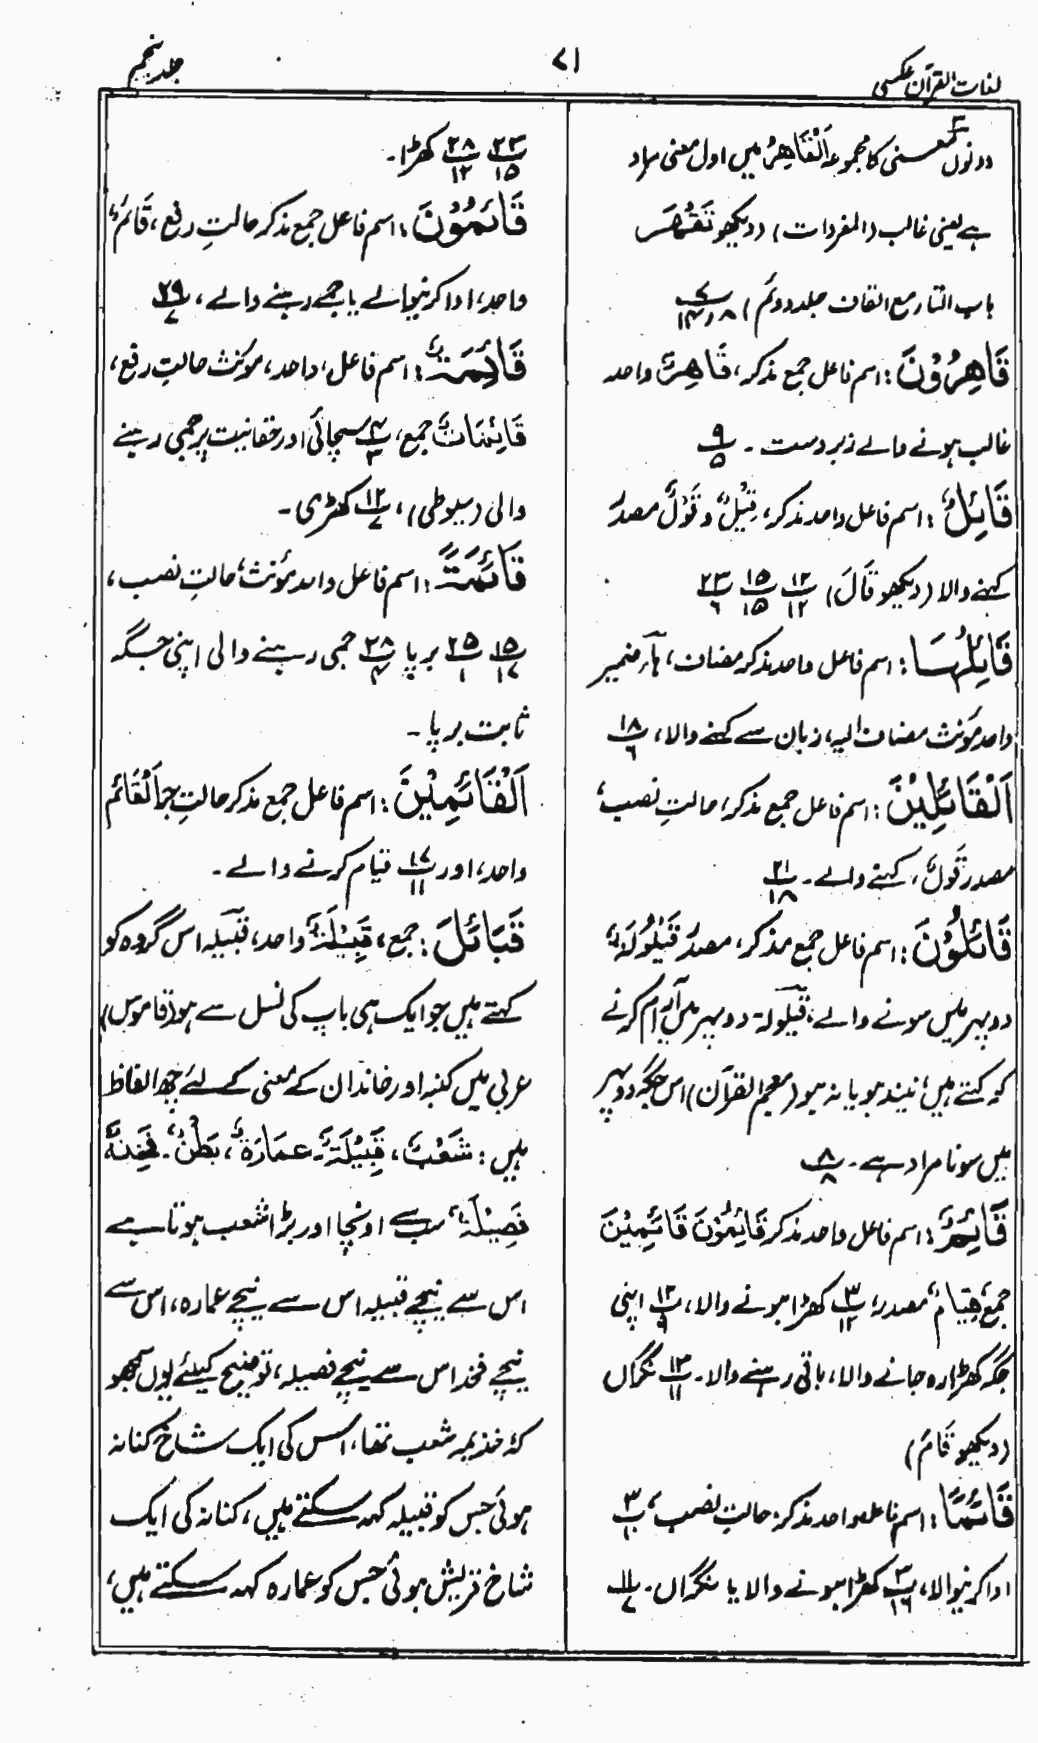 لغات القرآن عکسی
۷۱
جلد پنجم
دونوں معنی کا مجموعہ اَلْقَاهِرُ میں اول معنی مراد
ہے یعنی غالب (المفردات) (دیکھو تَقْهَر
باب التار مع القاف جلد دوئم) ۷/۸، ۱۴
قَاهِرُوْنَ: اسم فاعل جمع مذکر، قَاهِرٌ واحد
غالب ہونے والے زبردست۔ ۹/۵
قَائِلٌ: اسم فاعل واحد مذکر، قِيْلٌ و قَوْلٌ مصدر
کہنے والا (دیکھو قَالَ) ۱۲/۱۲ ۱۵/۱۵ ۲۳/۶
قَائِلُهَا: اسم فاعل واحد مذکر مضاف، ہآر ضمیر
واحد مؤنث مضاف الیہ، زبان سے کہنے والا، ۱۸/۶
اَلْقَائِلِيْنَ: اسم فاعل جمع مذکر، حالتِ نصب،
مصدر قَوْلٌ، کہنے والے۔ ۲۱/۱۸
قَائِلُوْنَ: اسم فاعل جمع مذکر، مصدر قَيْلُوْلَةٌ
دوپہر میں سونے والے، قیلولہ دوپہر میں آرام کرنے
کو کہتے ہیں، نیند ہو یا نہ ہو (معجم القرآن) اس جگہ دوپہر
میں سونا مراد ہے۔ ۸/۸
قَائِمٌ: اسم فاعل واحد مذکر قَائِمُوْنَ قَائِمِيْنَ
جمع، قِيَامٌ مصدر، ۳/۱۲ کھڑا ہونے والا، ۱۲/۹ اپنی
جگہ کھڑا رہ جانے والا، باقی رہنے والا۔ ۱۳/۱۱ نگراں
(دیکھو قَامَ)
قَائِمًا: اسم فاعل واحد مذکر، حالتِ نصب، ۳/۱۰
ادا کرنیوالا، ۳/۱۶ کھڑا ہونے والا یا نگراں۔ ۱۱/۷
۲۳/۱۵ ۲۸/۱۲ کھڑا۔
قَائِمُوْنَ: اسم فاعل جمع مذکر حالتِ رفع، قَائِمٌ
واحد، ادا کرنیوالے یا جمے رہنے والے، ۲۹/۷
قَائِمَةٌ: اسم فاعل، واحد، مؤنث حالتِ رفع،
قَائِمَاتٌ جمع، ۴/۳ سچائی اور حقانیت پر جمی رہنے
والی (سیوطی)، ۱۲/۷ کھڑی۔
قَائِمَةً: اسم فاعل واحد مؤنث، حالتِ نصب،
۱۵/۱۷ ۲۵/۱ برپا ۲۸/۴ جمی رہنے والی اپنی جگہ
ثابت برپا۔
اَلْقَائِمِيْنَ: اسم فاعل جمع مذکر حالتِ جر اَلْقَائِم
واحد، اور ۱۷/۱۱ قیام کرنے والے۔
قَبَائِلَ: جمع، قَبِيْلَةٌ واحد، قبیلہ اس گروہ کو
کہتے ہیں جو ایک ہی باپ کی نسل سے ہو (قاموس)
عربی میں کنبہ اور خاندان کے معنی کے لئے چھ الفاظ
ہیں: شَعْبٌ، قَبِيْلَةٌ۔ عِمَارَةٌ، بَطْنٌ۔ فَخِذٌ
فَصِيْلَةٌ سب سے اونچا اور بڑا شعب ہوتا ہے
اس سے نیچے قبیلہ اس سے نیچے عمارہ، اس سے
نیچے فخذ اس سے نیچے فصیلہ، توضیح کیلئے یوں سمجھو
کہ خذیمہ شعب تھا، اس کی ایک شاخ کنانہ
ہوئی جس کو قبیلہ کہہ سکتے ہیں، کنانہ کی ایک
شاخ قریش ہوئی جس کو عمارہ کہہ سکتے ہیں،